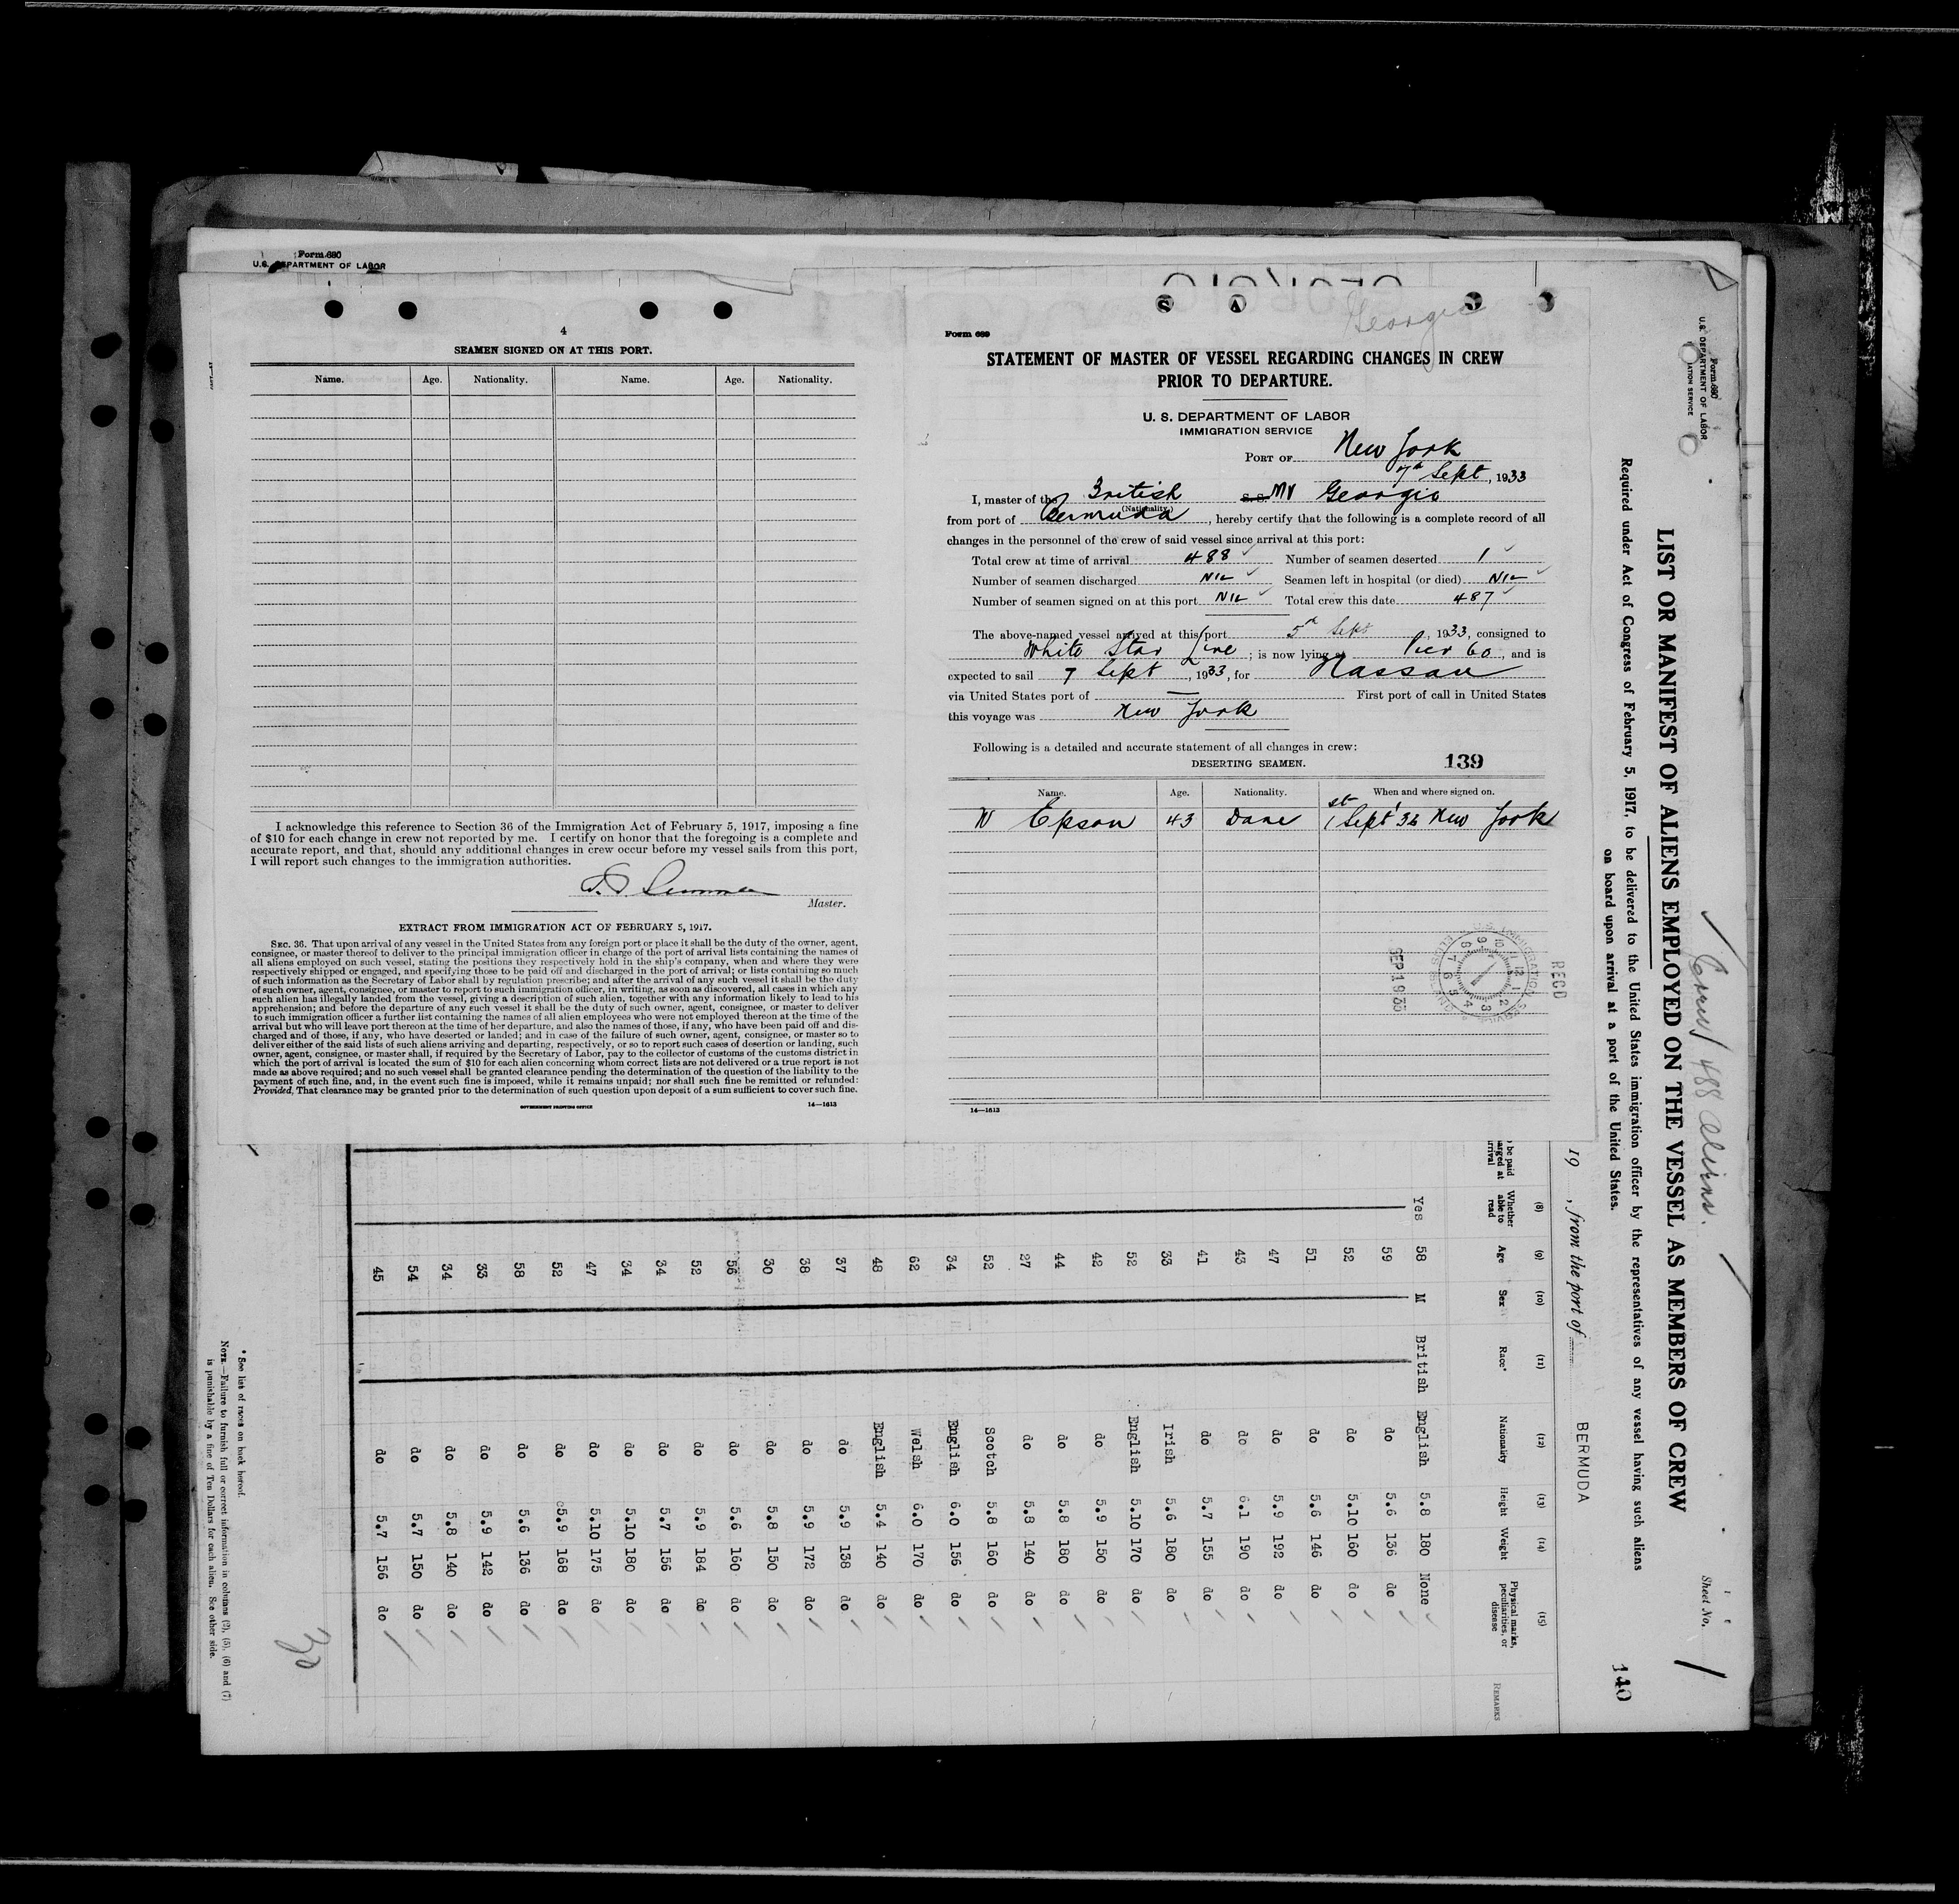 Form 680
U.S. DEPARTMENT OF LABOR
4
SEAMEN SIGNED ON AT THIS PORT.
Name. Age. Nationality. Name. Age. Nationality.
I acknowledge this reference to Section 36 of the Immigration Act of February 5, 1917, imposing a fine
of $10 for each change in crew not reported by me. I certify on honor that the foregoing is a complete and
accurate report, and that, should any additional changes in crew occur before my vessel sails from this port,
I will report such changes to the immigration authorities.
Master.
EXTRACT FROM IMMIGRATION ACT OF FEBRUARY 5, 1917.
SEC. 36. That upon arrival of any vessel in the United States from any foreign port or place it shall be the duty of the owner, agent,
consignee, or master thereof to deliver to the principal immigration officer in charge of the port of arrival lists containing the names of
all aliens employed on such vessel, stating the positions they respectively hold in the ship's company, when and where they were
respectively shipped or engaged, and specifying those to be paid off and discharged in the port of arrival; or lists containing so much
of such information as the Secretary of Labor shall by regulation prescribe; and after the arrival of any such vessel it shall be the duty
of such owner, agent, consignee, or master to report to such immigration officer, in writing, as soon as discovered, all cases in which any
such alien has illegally landed from the vessel, giving a description of such alien, together with any information likely to lead to his
apprehension; and before the departure of any such vessel it shall be the duty of such owner, agent, consignee, or master to deliver
to such immigration officer a further list containing the names of all alien employees who were not employed thereon at the time of the
arrival but who will leave port thereon at the time of her departure, and also the names of those, if any, who have been paid off and dis-
charged and of those, if any, who have deserted or landed; and in case of the failure of such owner, agent, consignee, or master so to
deliver either of the said lists of such aliens arriving and departing, respectively, or so to report such cases of desertion or landing, such
owner, agent, consignee, or master shall, if required by the Secretary of Labor, pay to the collector of customs of the customs district in
which the port of arrival is located the sum of $10 for each alien concerning whom correct lists are not delivered or a true report is not
made as above required; and no such vessel shall be granted clearance pending the determination of the question of the liability to the
payment of such fine, and, in the event such fine is imposed, while it remains unpaid; nor shall such fine be remitted or refunded:
Provided, That clearance may be granted prior to the determination of such question upon deposit of a sum sufficient to cover such fine.
GOVERNMENT PRINTING OFFICE 14—1613
S A
Georgic
Form 689
STATEMENT OF MASTER OF VESSEL REGARDING CHANGES IN CREW
PRIOR TO DEPARTURE.
U. S. DEPARTMENT OF LABOR
IMMIGRATION SERVICE
PORT OF New York
7th Sept, 1933
I, master of the British S.S. MV Georgic
(Nationality)
from port of Bermuda, hereby certify that the following is a complete record of all
changes in the personnel of the crew of said vessel since arrival at this port:
Total crew at time of arrival 488 Number of seamen deserted 1
Number of seamen discharged Nil Seamen left in hospital (or died) Nil
Number of seamen signed on at this port Nil Total crew this date 487
The above-named vessel arrived at this port 5th Sept, 1933, consigned to
White Star Line; is now lying at Pier 60, and is
expected to sail 7 Sept, 1933, for Nassau
via United States port of — First port of call in United States
this voyage was New York
Following is a detailed and accurate statement of all changes in crew:
DESERTING SEAMEN. 139
Name. Age. Nationality. When and where signed on.
W Epson 43 Dane 1st Sept '33 New York
RECD
SEP 19 33
14—1613
Form 680
U.S. DEPARTMENT OF LABOR
488 Aliens.
Sheet No. 1
LIST OR MANIFEST OF ALIENS EMPLOYED ON THE VESSEL AS MEMBERS OF CREW
Required under Act of Congress of February 5, 1917, to be delivered to the United States immigration officer by the representatives of any vessel having such aliens
on board upon arrival at a port of the United States.
140
19 , from the port of BERMUDA
(8) (9) (10) (11) (12) (13) (14) (15)
Whether able to read Age Sex Race* Nationality Height Weight Physical marks, peculiarities, or disease REMARKS
Yes 58 M British English 5.8 180 None
59 do 5.6 136 do
52 do 5.10 160 do
51 do 5.6 146 do
47 do 5.9 192 do
43 do 6.1 190 do
41 do 5.7 155 do
33 Irish 5.6 180 do
52 English 5.10 170 do
42 do 5.9 150 do
44 do 5.8 180 do
27 do 5.8 140 do
52 Scotch 5.8 160 do
34 English 6.0 156 do
62 Welsh 6.0 170 do
48 English 5.4 140 do
37 do 5.9 138 do
38 do 5.9 172 do
30 do 5.8 150 do
56 do 5.6 160 do
52 do 5.9 184 do
34 do 5.7 156 do
34 do 5.10 180 do
47 do 5.10 175 do
52 do 5.9 168 do
58 do 5.6 136 do
33 do 5.9 142 do
34 do 5.8 140 do
54 do 5.7 150 do
45 do 5.7 156 do
* See list of races on back hereof.
NOTE.—Failure to furnish full or correct information in columns (2), (5), (6) and (7)
is punishable by a fine of Ten Dollars for each alien. See other side.